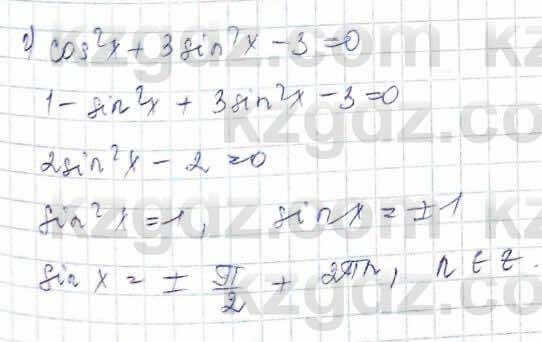 г) cos²x + 3sin²x - 3 = 0
1 - sin²x + 3sin²x - 3 = 0
2sin²x - 2 = 0
sin²x = 1, sin x = ±1
sin x = ± π/2 + 2πn, n ∈ Z.
kzgdz.com